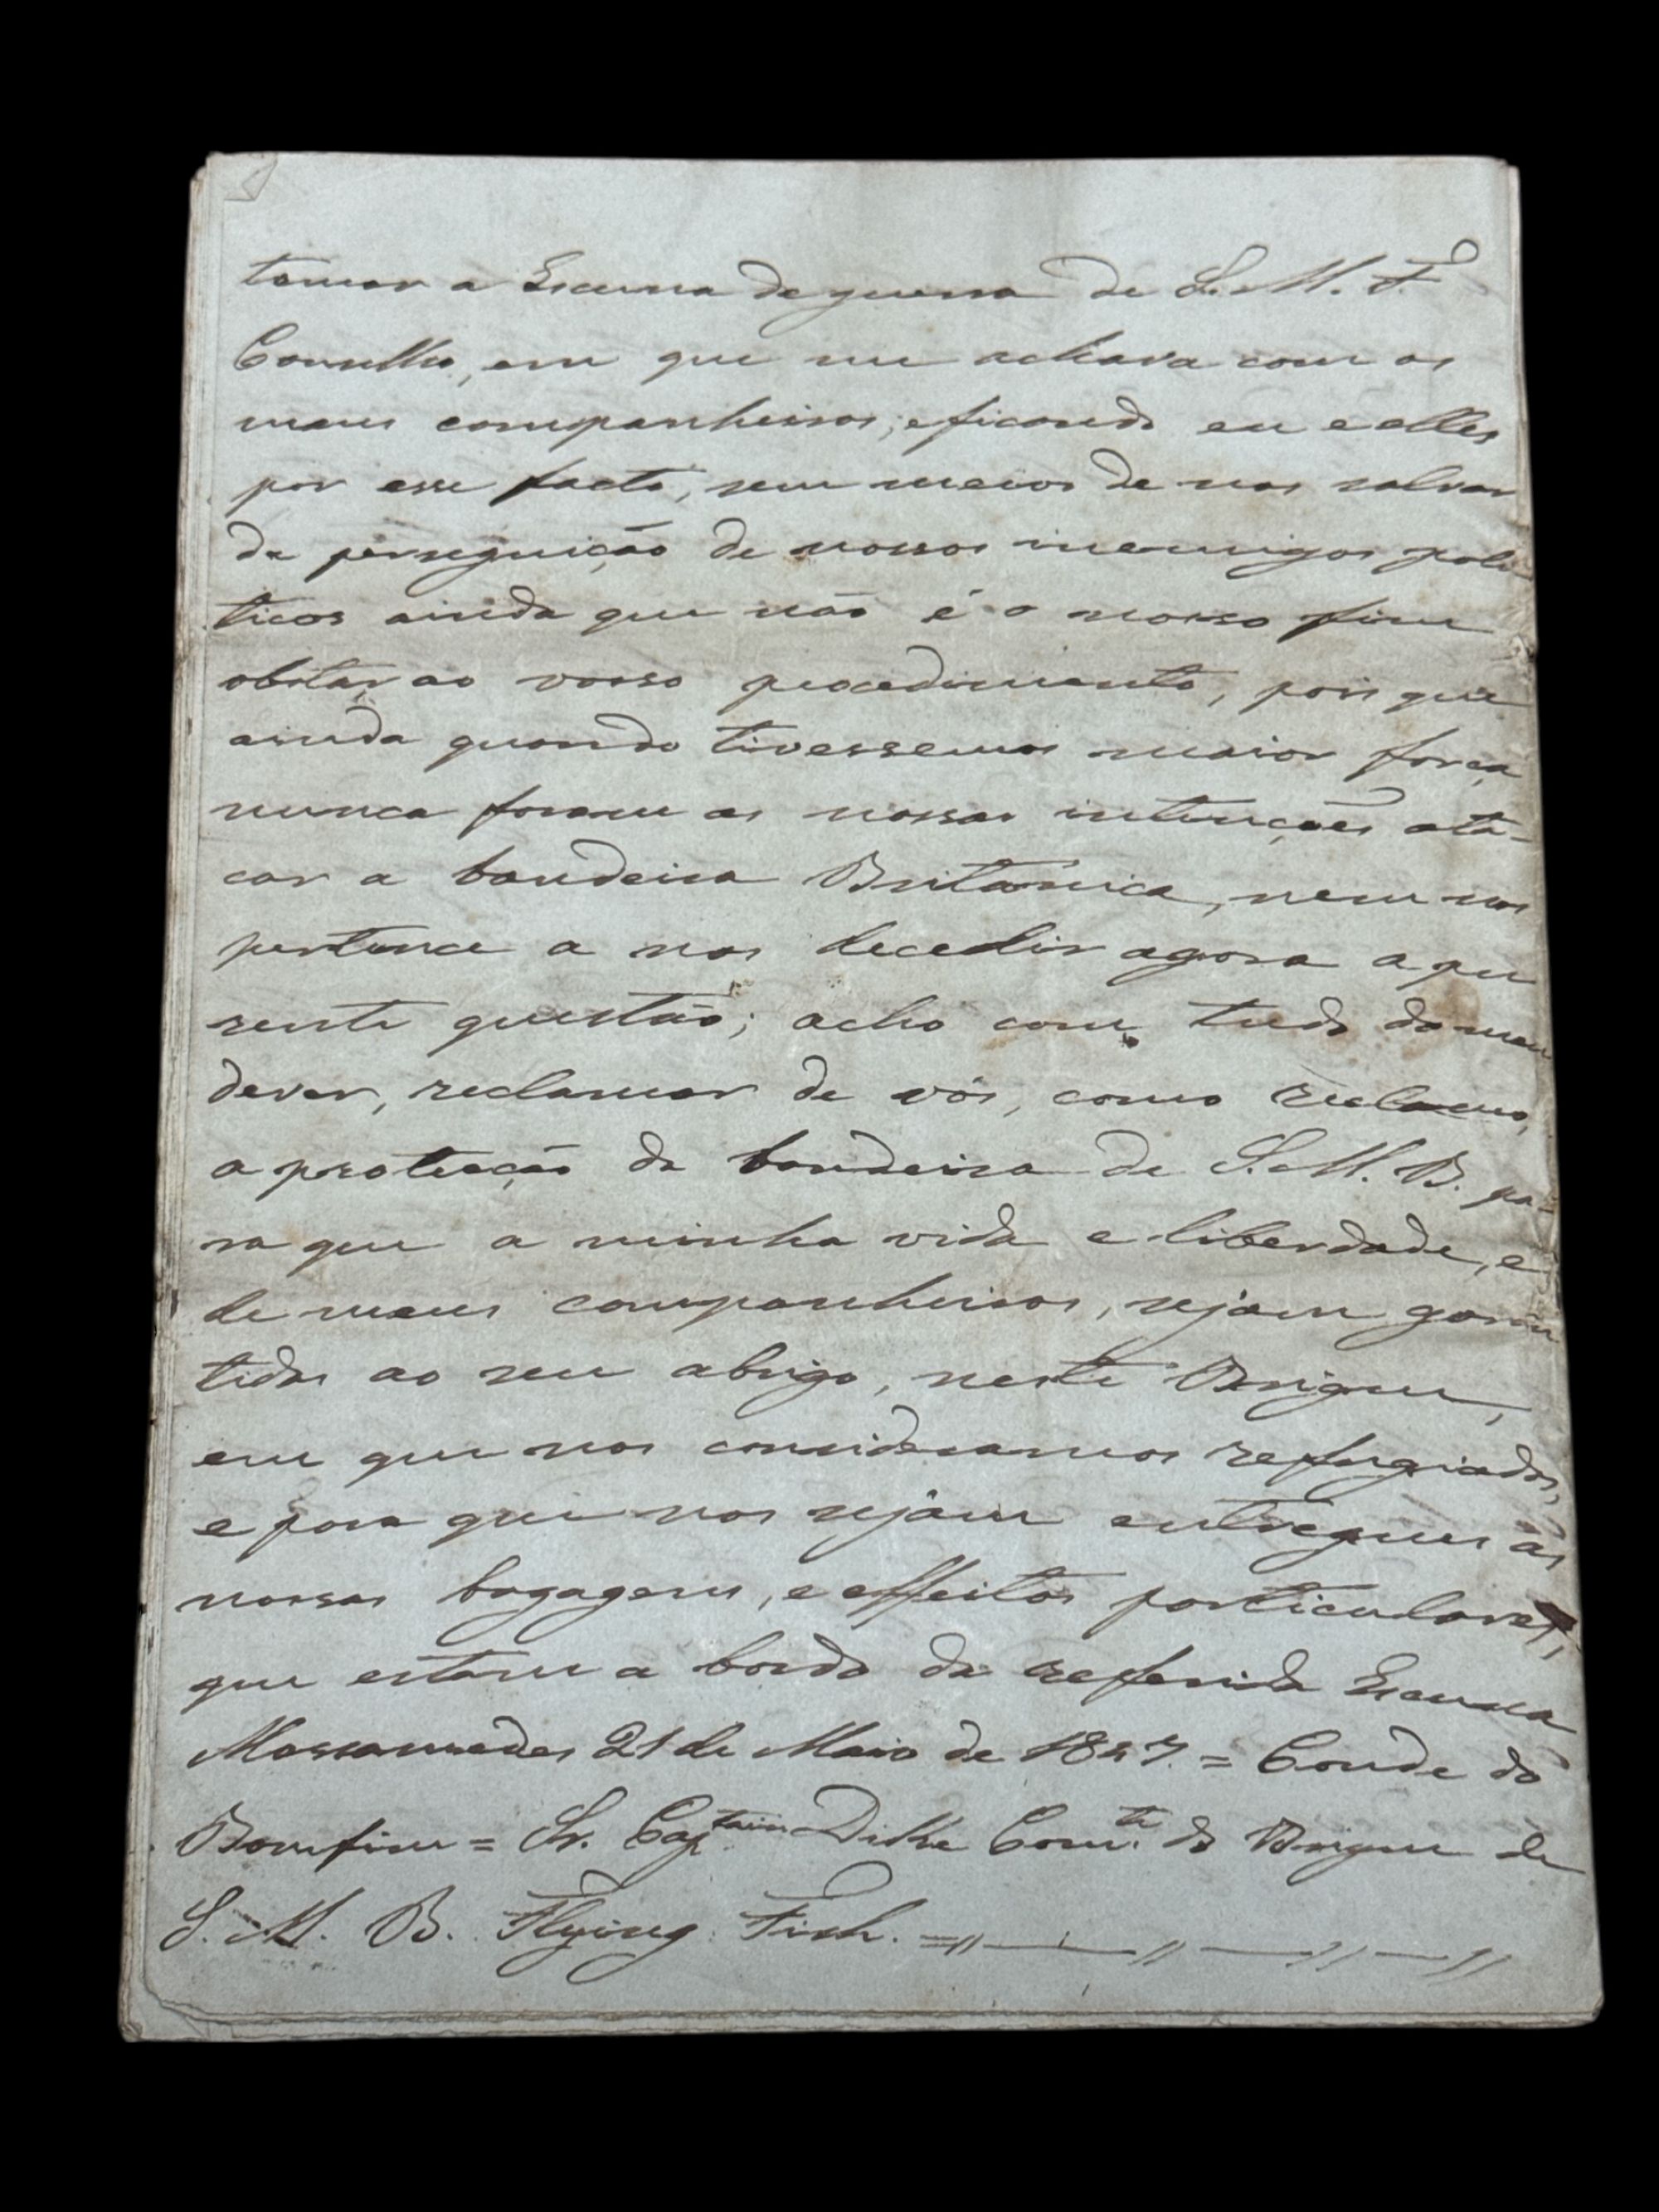 tomar a Escuna de guerra de S. M. F.
Conselho, em que me achava com os
maus companheiros, e ficando eu e elles
por esse facto, sem meios de nos salvar
da perseguição de nossos inemigos poli
ticos ainda que não é o nosso fim
obstar ao vosso procedimento, pois que
ainda quando tivessemos maior força
nunca foram as nossas intenções ata-
car a bandeira Britanica, nem nos
pertence a nos decedir agora a pre
sente questão; acho com tudo do meu
dever, reclamar de vós, como reclamo,
a protecção da bandeira de S. M. B. pa-
ra que a minha vida e liberdade, e
de meus companheiros, sejam garan
tidas ao seu abrigo, neste Brigue,
em que nos consideramos refugiados,
e para que nos sejam entregues as
nossas bagagens, e effeitos particulares,
que estam a bordo da referida Escuna
Mossamedes 21 de Maio de 1847. = Conde do
Bomfim = Sr. Captain Dilke Com.te do Brigue de
S. M. B. Flying Fish. =//—//—//—//